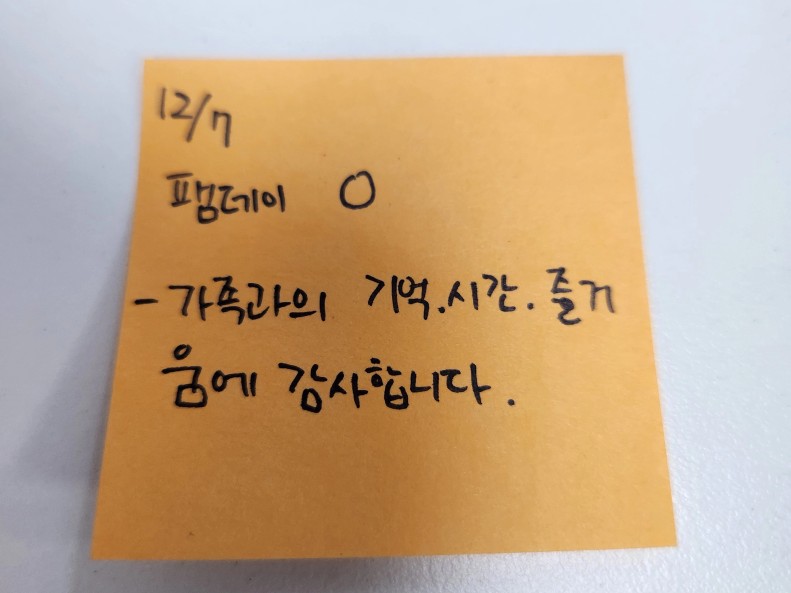 12/7
팸데이 O
- 가족과의 기억.시간.즐거
움에 감사합니다.